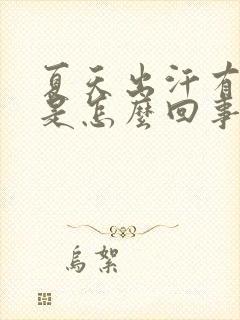 夏天出汗有
是怎麼回事
烏絮